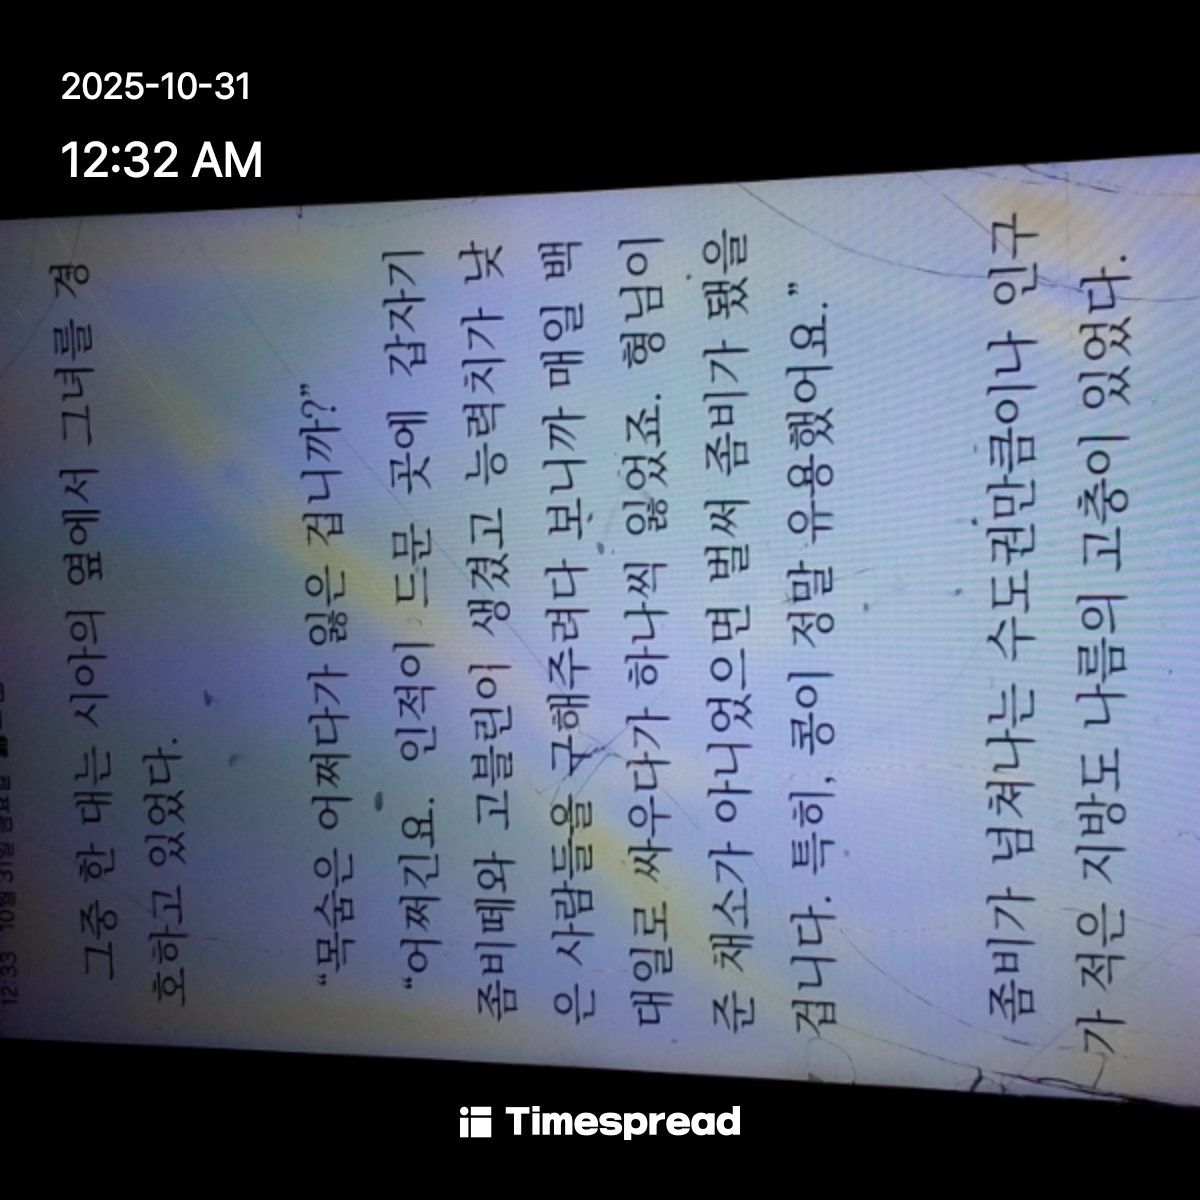 2025-10-31
12:32 AM
12:33 10월 31일 금요일
그중 한 대는 시아의 옆에서 그녀를 경
호하고 있었다.
“목숨은 어쩌다가 잃은 겁니까?”
“어쩌긴요. 인적이 드문 곳에 갑자기
좀비떼와 고블린이 생겼고 능력치가 낮
은 사람들을 구해주려다 보니까 매일 백
대일로 싸우다가 하나씩 잃었죠. 형님이
준 채소가 아니었으면 벌써 좀비가 됐을
겁니다. 특히, 콩이 정말 유용했어요.”
좀비가 넘쳐나는 수도권만큼이나 인구
가 적은 지방도 나름의 고충이 있었다.
Timespread